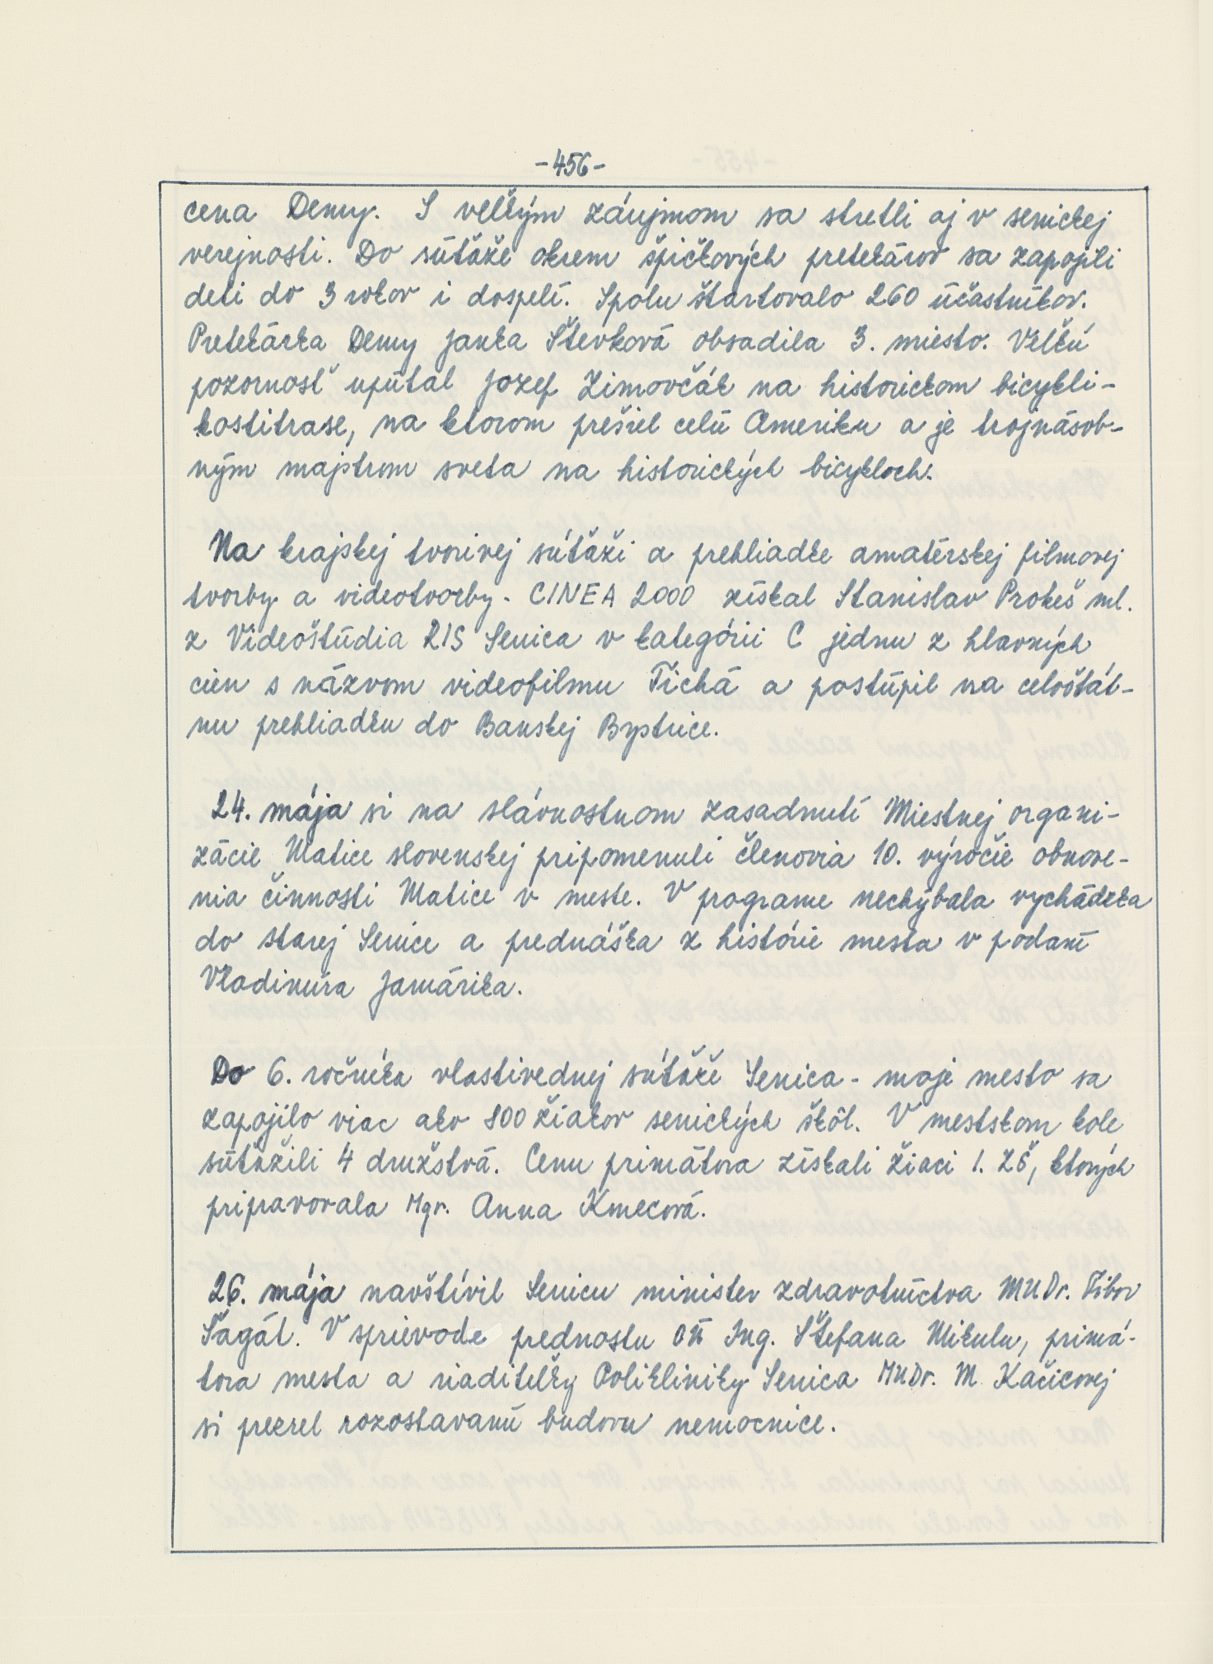 -456-
cena Demy. S veľkým záujmom sa stretli aj v senickej
verejnosti. Do súťaže okrem špičkových pretekárov sa zapojili
deti do 3 rokov i dospelí. Spolu štartovalo 260 účastníkov.
Pretekárka Demy Janka Števková obsadila 3. miesto. Veľkú
pozornosť upútal Jozef Zimovčák na historickom bicykli-
kostitrase, na ktorom prešiel celú Ameriku a je trojnásob-
ným majstrom sveta na historických bicykloch.
Na krajskej tvorivej súťaži a prehliadke amatérskej filmovej
tvorby a videotvorby - CINEA 2000 získal Stanislav Prokeš ml.
z Videoštúdia 21S Senica v kategórii C jednu z hlavných
cien s názvom videofilmu Tichá a postúpil na celoštát-
nu prehliadku do Banskej Bystrice.
24. mája si na slávnostnom zasadnutí Miestnej organi-
zácie Matice slovenskej pripomenuli členovia 10. výročie obnove-
nia činnosti Matice v meste. V programe nechýbala vychádzka
do starej Senice a prednáška z histórie mesta v podaní
Vladimíra Jamárika.
Do 6. ročníka vlastivednej súťaže Senica - moje mesto sa
zapojilo viac ako 800 žiakov senických škôl. V mestskom kole
súťažili 4 družstvá. Cenu primátora získali žiaci 1. ZŠ, ktorých
pripravovala Mgr. Anna Kmecová.
26. mája navštívil Senicu minister zdravotníctva MUDr. Tibor
Šagát. V sprievode prednostu OÚ Ing. Štefana Mikulu, primá-
tora mesta a riaditeľky Polikliniky Senica MUDr. M. Kačicovej
si prezrel rozostavanú budovu nemocnice.